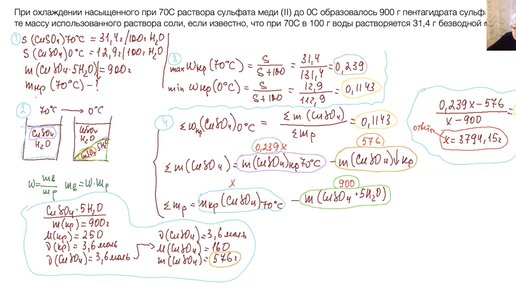 При охлаждении насыщенного при 70С раствора сульфата меди (II) до 0С образовалось 900 г пентагидрата сульф
те массу использованного раствора соли, если известно, что при 70С в 100 г воды растворяется 31,4 г безводной
1
S(CuSO4)70°C = 31,4г/100г H2O
S(CuSO4)0°C = 12,9г/100г H2O
m(CuSO4·5H2O) = 900г
mнкр(70°C) - ?
2
70°C → 0°C
CuSO4
H2O
CuSO4
H2O
CuSO4·5H2O
W = mв/mр mв = W·mр
CuSO4·5H2O
m(кр) = 900г
M(кр) = 250
ν(кр) = 3,6 моль
ν(CuSO4) = 3,6 моль
ν(CuSO4) = 3,6 моль
M(CuSO4) = 160
m(CuSO4) = 576г
3
max Wнкр(70°C) = S/(S+100) = 31,4/131,4 = 0,239
min Wнкр(0°C) = S/(S+100) = 12,9/112,9 = 0,1143
4
ΣWнкр(CuSO4)0°C = Σm(CuSO4)/Σmр = 0,1143
0,239x 576
Σm(CuSO4) = m(CuSO4)нкр70°C - m(CuSO4)↓кр
x 900
Σmр = mнкр(CuSO4)70°C - m(CuSO4·5H2O)
(0,239x - 576)/(x - 900) =
ответ: x = 3794,15г